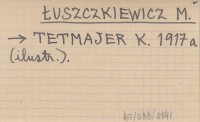 ŁUSZCZKIEWICZ M.
→ TETMAJER K. 1917a
(ilustr.).